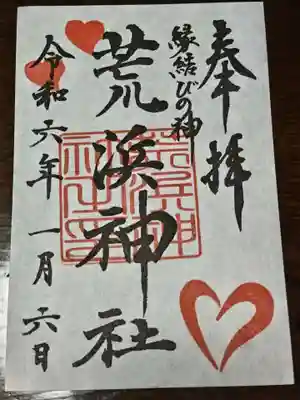 奉拝
縁結びの神
荒浜神社
令和六年一月六日